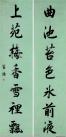 曲池苔色冰前液
上苑梅香雪裡